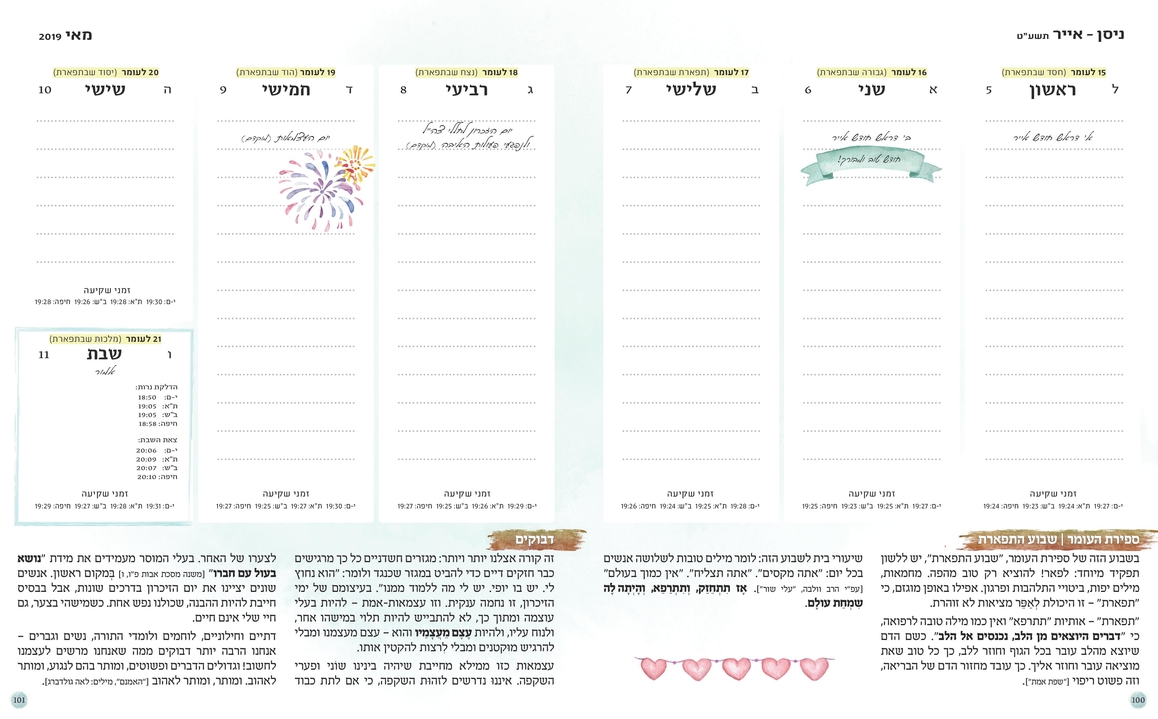 ניסן - אייר תשע"ט
מאי 2019
15 לעומר (חסד שבתפארת)
ל ראשון 5
א' דראש חודש אייר
זמני שקיעה
י-ם: 19:27 ת"א: 19:24 ב"ש: 19:23 חיפה: 19:24
16 לעומר (גבורה שבתפארת)
א שני 6
ב' דראש חודש אייר
חודש טוב ומבורך!
זמני שקיעה
י-ם: 19:27 ת"א: 19:25 ב"ש: 19:23 חיפה: 19:25
17 לעומר (תפארת שבתפארת)
ב שלישי 7
זמני שקיעה
י-ם: 19:28 ת"א: 19:25 ב"ש: 19:24 חיפה: 19:26
18 לעומר (נצח שבתפארת)
ג רביעי 8
יום הזכרון לחללי צה"ל
ולנפגעי פעולות האיבה (מוקדם)
זמני שקיעה
י-ם: 19:29 ת"א: 19:26 ב"ש: 19:25 חיפה: 19:27
19 לעומר (הוד שבתפארת)
ד חמישי 9
יום העצמאות (מוקדם)
זמני שקיעה
י-ם: 19:30 ת"א: 19:27 ב"ש: 19:25 חיפה: 19:27
20 לעומר (יסוד שבתפארת)
ה שישי 10
זמני שקיעה
י-ם: 19:30 ת"א: 19:28 ב"ש: 19:26 חיפה: 19:28
21 לעומר (מלכות שבתפארת)
ו שבת 11
אמור
הדלקת נרות:
י-ם: 18:50
ת"א: 19:05
ב"ש: 19:05
חיפה: 18:58
צאת השבת:
י-ם: 20:06
ת"א: 20:09
ב"ש: 20:07
חיפה: 20:10
זמני שקיעה
י-ם: 19:31 ת"א: 19:28 ב"ש: 19:27 חיפה: 19:29
ספירת העומר | שבוע התפארת
בשבוע הזה של ספירת העומר, "שבוע התפארת", יש ללשון
תפקיד מיוחד: לפאר! להוציא רק טוב מהפה. מחמאות,
מילים יפות, ביטויי התלהבות ופרגון. אפילו באופן מוגזם, כי
"תפארת" – זו היכולת לְאַפֵּר מציאות לא זוהרת.
"תפארת" – אותיות "תתרפא" ואין כמו מילה טובה לרפואה,
כי "דברים היוצאים מן הלב, נכנסים אל הלב". כשם הדם
שיוצא מהלב עובר בכל הגוף וחוזר ללב, כך כל טוב שאת
מוציאה עובר וחוזר אליך. כך עובד מחזור הדם של הבריאה,
וזה פשוט ריפוי ["שפת אמת"].
שיעורי בית לשבוע הזה: לומר מילים טובות לשלושה אנשים
בכל יום: "אתה מקסים". "אתה תצליח". "אין כמוך בעולם"
[עפ"י הרב וולבה, "עלי שור"]. אָז תִתְחַזֵּק, וְתִתְרַפֵּא, וְהָיְתָה לָהּ
שִׂמְחַת עוֹלָם.
דבוקים
זה קורה אצלנו יותר ויותר: מגזרים חשדניים כל כך מרגישים
כבר חזקים דיים כדי להביט במגזר שכנגד ולומר: "הוא נחוץ
לי. יש בו יופי. יש לי מה ללמוד ממנו". בעיצומם של ימי
הזיכרון, זו נחמה ענקית. וזו עצמאות-אמת – להיות בעלי
עוצמה ומתוך כך, לא להתבייש להיות תלוי במישהו אחר,
ולנוח עליו, ולהיות עֶצֶם מֵעֲצָמַיו והוא – עצם מעצמנו ומבלי
להרגיש מוקטנים ומבלי לִרצות להקטין אותו.
עצמאות כזו ממילא מחייבת שיהיה בינינו שוני ופערי
השקפה. איננו נדרשים לזהות השקפה, כי אם לתת כבוד
לצערו של האחר. בעלי המוסר מעמידים את מידת "נושא
בעול עם חברו" [משנה מסכת אבות פ"ו, ו] במקום ראשון. אנשים
שונים יציינו את יום הזיכרון בדרכים שונות, אבל בבסיס
חייבת להיות ההבנה, שכולנו נפש אחת. כשמישהי בצער, גם
חיי שלי אינם חיים.
דתיים וחילוניים, לוחמים ולומדי התורה, נשים וגברים –
אנחנו הרבה יותר דבוקים ממה שאנחנו מרשים לעצמנו
לחשוב! וגדולים הדברים ופשוטים, ומותר בהם לנגוע, ומותר
לאהוב. ומותר, ומותר לאהוב ["האמנם", מילים: לאה גולדברג].
100
101